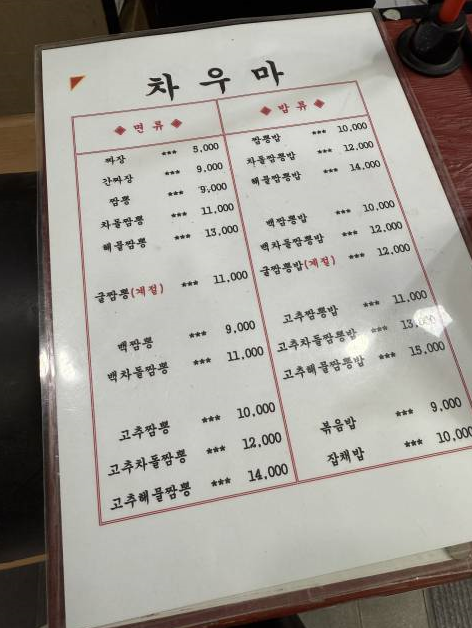 차우마
◆ 면 류 ◆
짜장 *** 5,000
간짜장 *** 9,000
짬뽕 *** 9,000
차돌짬뽕 *** 11,000
해물짬뽕 *** 13,000
굴짬뽕(계절) *** 11,000
백짬뽕 *** 9,000
백차돌짬뽕 *** 11,000
고추짬뽕 *** 10,000
고추차돌짬뽕 *** 12,000
고추해물짬뽕 *** 14,000
◆ 밥 류 ◆
짬뽕밥 *** 10,000
차돌짬뽕밥 *** 12,000
해물짬뽕밥 *** 14,000
백짬뽕밥 *** 10,000
백차돌짬뽕밥 *** 12,000
굴짬뽕밥(계절) *** 12,000
고추짬뽕밥 *** 11,000
고추차돌짬뽕밥 *** 13,000
고추해물짬뽕밥 *** 15,000
볶음밥 *** 9,000
잡채밥 *** 10,000